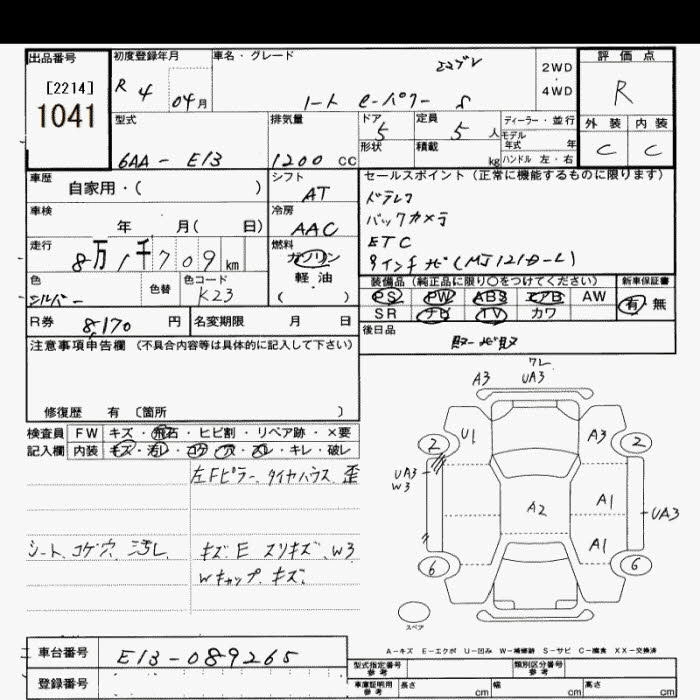 出品番号 初度登録年月 車名・グレード 評価点
[2214] R 4 04月 ノート e-パワー S 2WD・4WD R
1041
型式 排気量 ドア 定員 ディーラー・並行 外装 内装
6AA-E13 1200 CC 5 5 人 モデル年式 年 C C
形状 積載 kg ハンドル 左・右
車歴 シフト セールスポイント(正常に機能するものに限ります)
自家用・( ) AT
ドラレコ
車検 冷房 バックカメラ
年 月( 日) AAC ETC
走行 燃料 9インチナビ(MJ121D-L)
8万1千709km ガソリン
軽・油
( )
色 色替 色コード
シルバー K23
装備品(純正品に限り○をつけてください) 新車保証書
PS PW ABS エアB AW 有・無
SR ナビ TV カワ
R券 8,170 円 名変期限 月 日 後日品
注意事項申告欄(不具合内容等は具体的に記入して下さい)
修復歴 有 〔箇所 〕
検査員 FW キズ・飛石・ヒビ割・リペア跡・×要
記入欄 内装 キズ・汚レ・コゲ・穴・スレ・キレ・破レ
左Fピラー、タイヤハウス 歪
シート、コゲ穴、汚レ キズ、E スリキズ、W3
Wキャップ、キズ、
ワレ
A3 UA3
U1 A3
2 2
UA3
W3
A2 A1 UA3
A1
6 6
スペア
A-キズ E-エクボ U-凹み W-補修跡 S-サビ C-腐食 XX-交換済
車台番号 E13-089265
型式指定番号 参考 類別区分番号 参考
登録番号 車庫証明用 参考 長さ cm 幅 cm 高さ cm